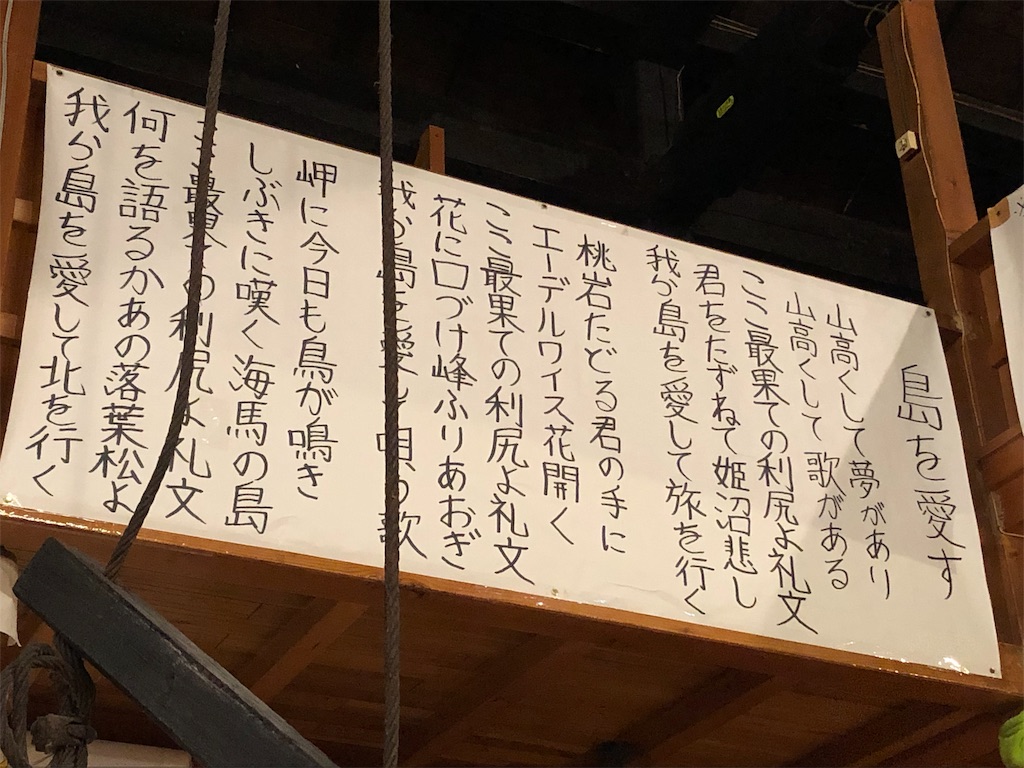 島を愛す
山高くして夢があり
山高くして歌がある
ここ最果ての利尻よ礼文
君をたずねて姫沼悲し
我が島を愛して旅を行く
桃岩たどる君の手に
エーデルワイス花開く
ここ最果ての利尻よ礼文
花に口づけ峰ふりあおぎ
我が島を愛し唄う歌
岬に今日も鳥が鳴き
しぶきに嘆く海馬の島
ここ最果ての利尻よ礼文
何を語るかあの落葉松よ
我が島を愛して北を行く